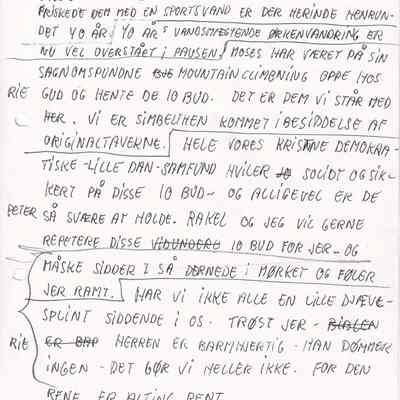 FRISKEDE DEM MED EN SPORTSVAND ER DER HERINDE HENRUN-
DET 40 ÅR. 40 ÅRS VANDSMÆGTENDE ØRKENVANDRING ER
NU VEL OVERSTÅET I PAUSEN. MOSES HAR VÆRET PÅ SIN
SAGNOMSPUNDNE MOUNTAINCLIMBNING OPPE HOS
RIE GUD OG HENTE DE 10 BUD. DET ER DEM VI STÅR MED
HER. VI ER SIMBELTHEN KOMMET I BESIDDELSE AF
ORIGINALTAVERNE. HELE VORES KRISTNE DEMOKRA-
TISKE-LILLE DAN-SAMFUND HVILER SOLIDT OG SIK-
KERT PÅ DISSE 10 BUD- OG ALLIGEVEL ER DE
PETER SÅ SVÆRE AT HOLDE. RAKEL OG JEG VIL GERNE
REPETERE DISSE VIDUNDERE 10 BUD FOR JER - OG
MÅSKE SIDDER I SÅ DERNEDE I MØRKET OG FØLER
JER RAMT. HAR VI IKKE ALLE EN LILLE DJÆVE-
SPLINT SIDDENDE I OS. TRØST JER -
RIE HERREN ER BARMHJERTIG - HAN DØMMER
INGEN - DET GØR VI HELLER IKKE. FOR DEN
RENE ER ALTING RENT